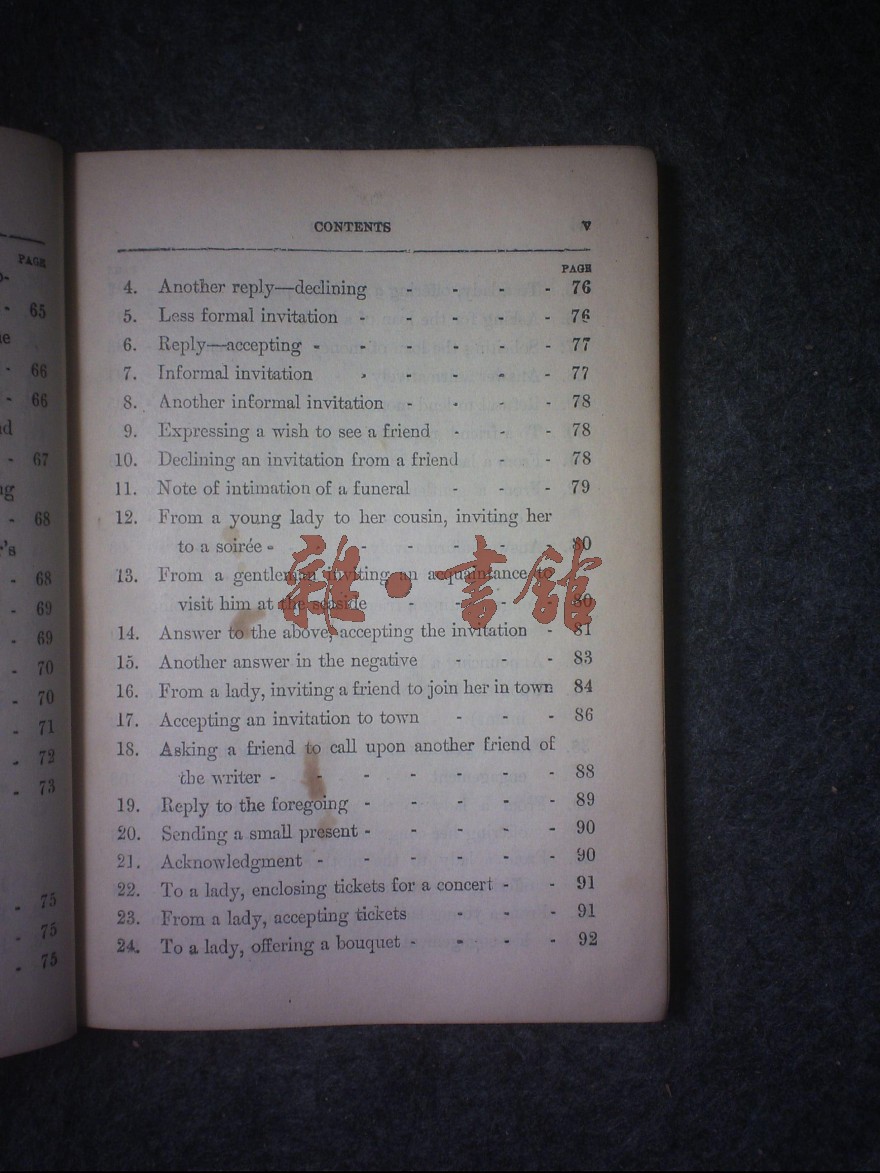 PAGE
65
66
66
67
68
68
69
69
70
70
71
72
73
75
75
75
CONTENTS v
PAGE
4. Another reply—declining - - - - 76
5. Less formal invitation - - - - - 76
6. Reply—accepting - - - - - 77
7. Informal invitation - - - - - 77
8. Another informal invitation - - - - 78
9. Expressing a wish to see a friend - - - 78
10. Declining an invitation from a friend - - 78
11. Note of intimation of a funeral - - - 79
12. From a young lady to her cousin, inviting her
to a soirée - - - - - - - 80
13. From a gentleman inviting an acquaintance to
visit him at the seaside - - - 80
14. Answer to the above, accepting the invitation - 81
15. Another answer in the negative - - - 83
16. From a lady, inviting a friend to join her in town 84
17. Accepting an invitation to town - - - 86
18. Asking a friend to call upon another friend of
the writer - - - - - - - 88
19. Reply to the foregoing - - - - - 89
20. Sending a small present - - - - - 90
21. Acknowledgment - - - - - - 90
22. To a lady, enclosing tickets for a concert - - 91
23. From a lady, accepting tickets - - - 91
24. To a lady, offering a bouquet - - - - 92
雜·書館